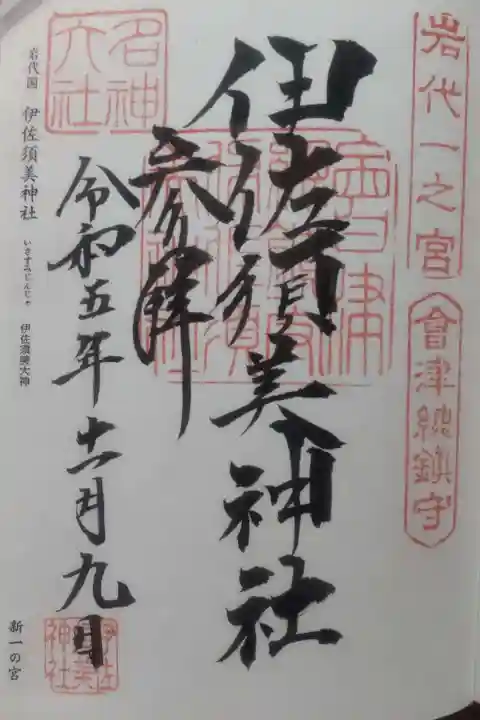 岩代一之宮
會津総鎮守
伊佐須美神社
参拝
令和五年十一月九日
名神大社
岩代国 伊佐須美神社 いさすみじんじゃ 伊佐須美大神
伊佐須美神社
新一の宮